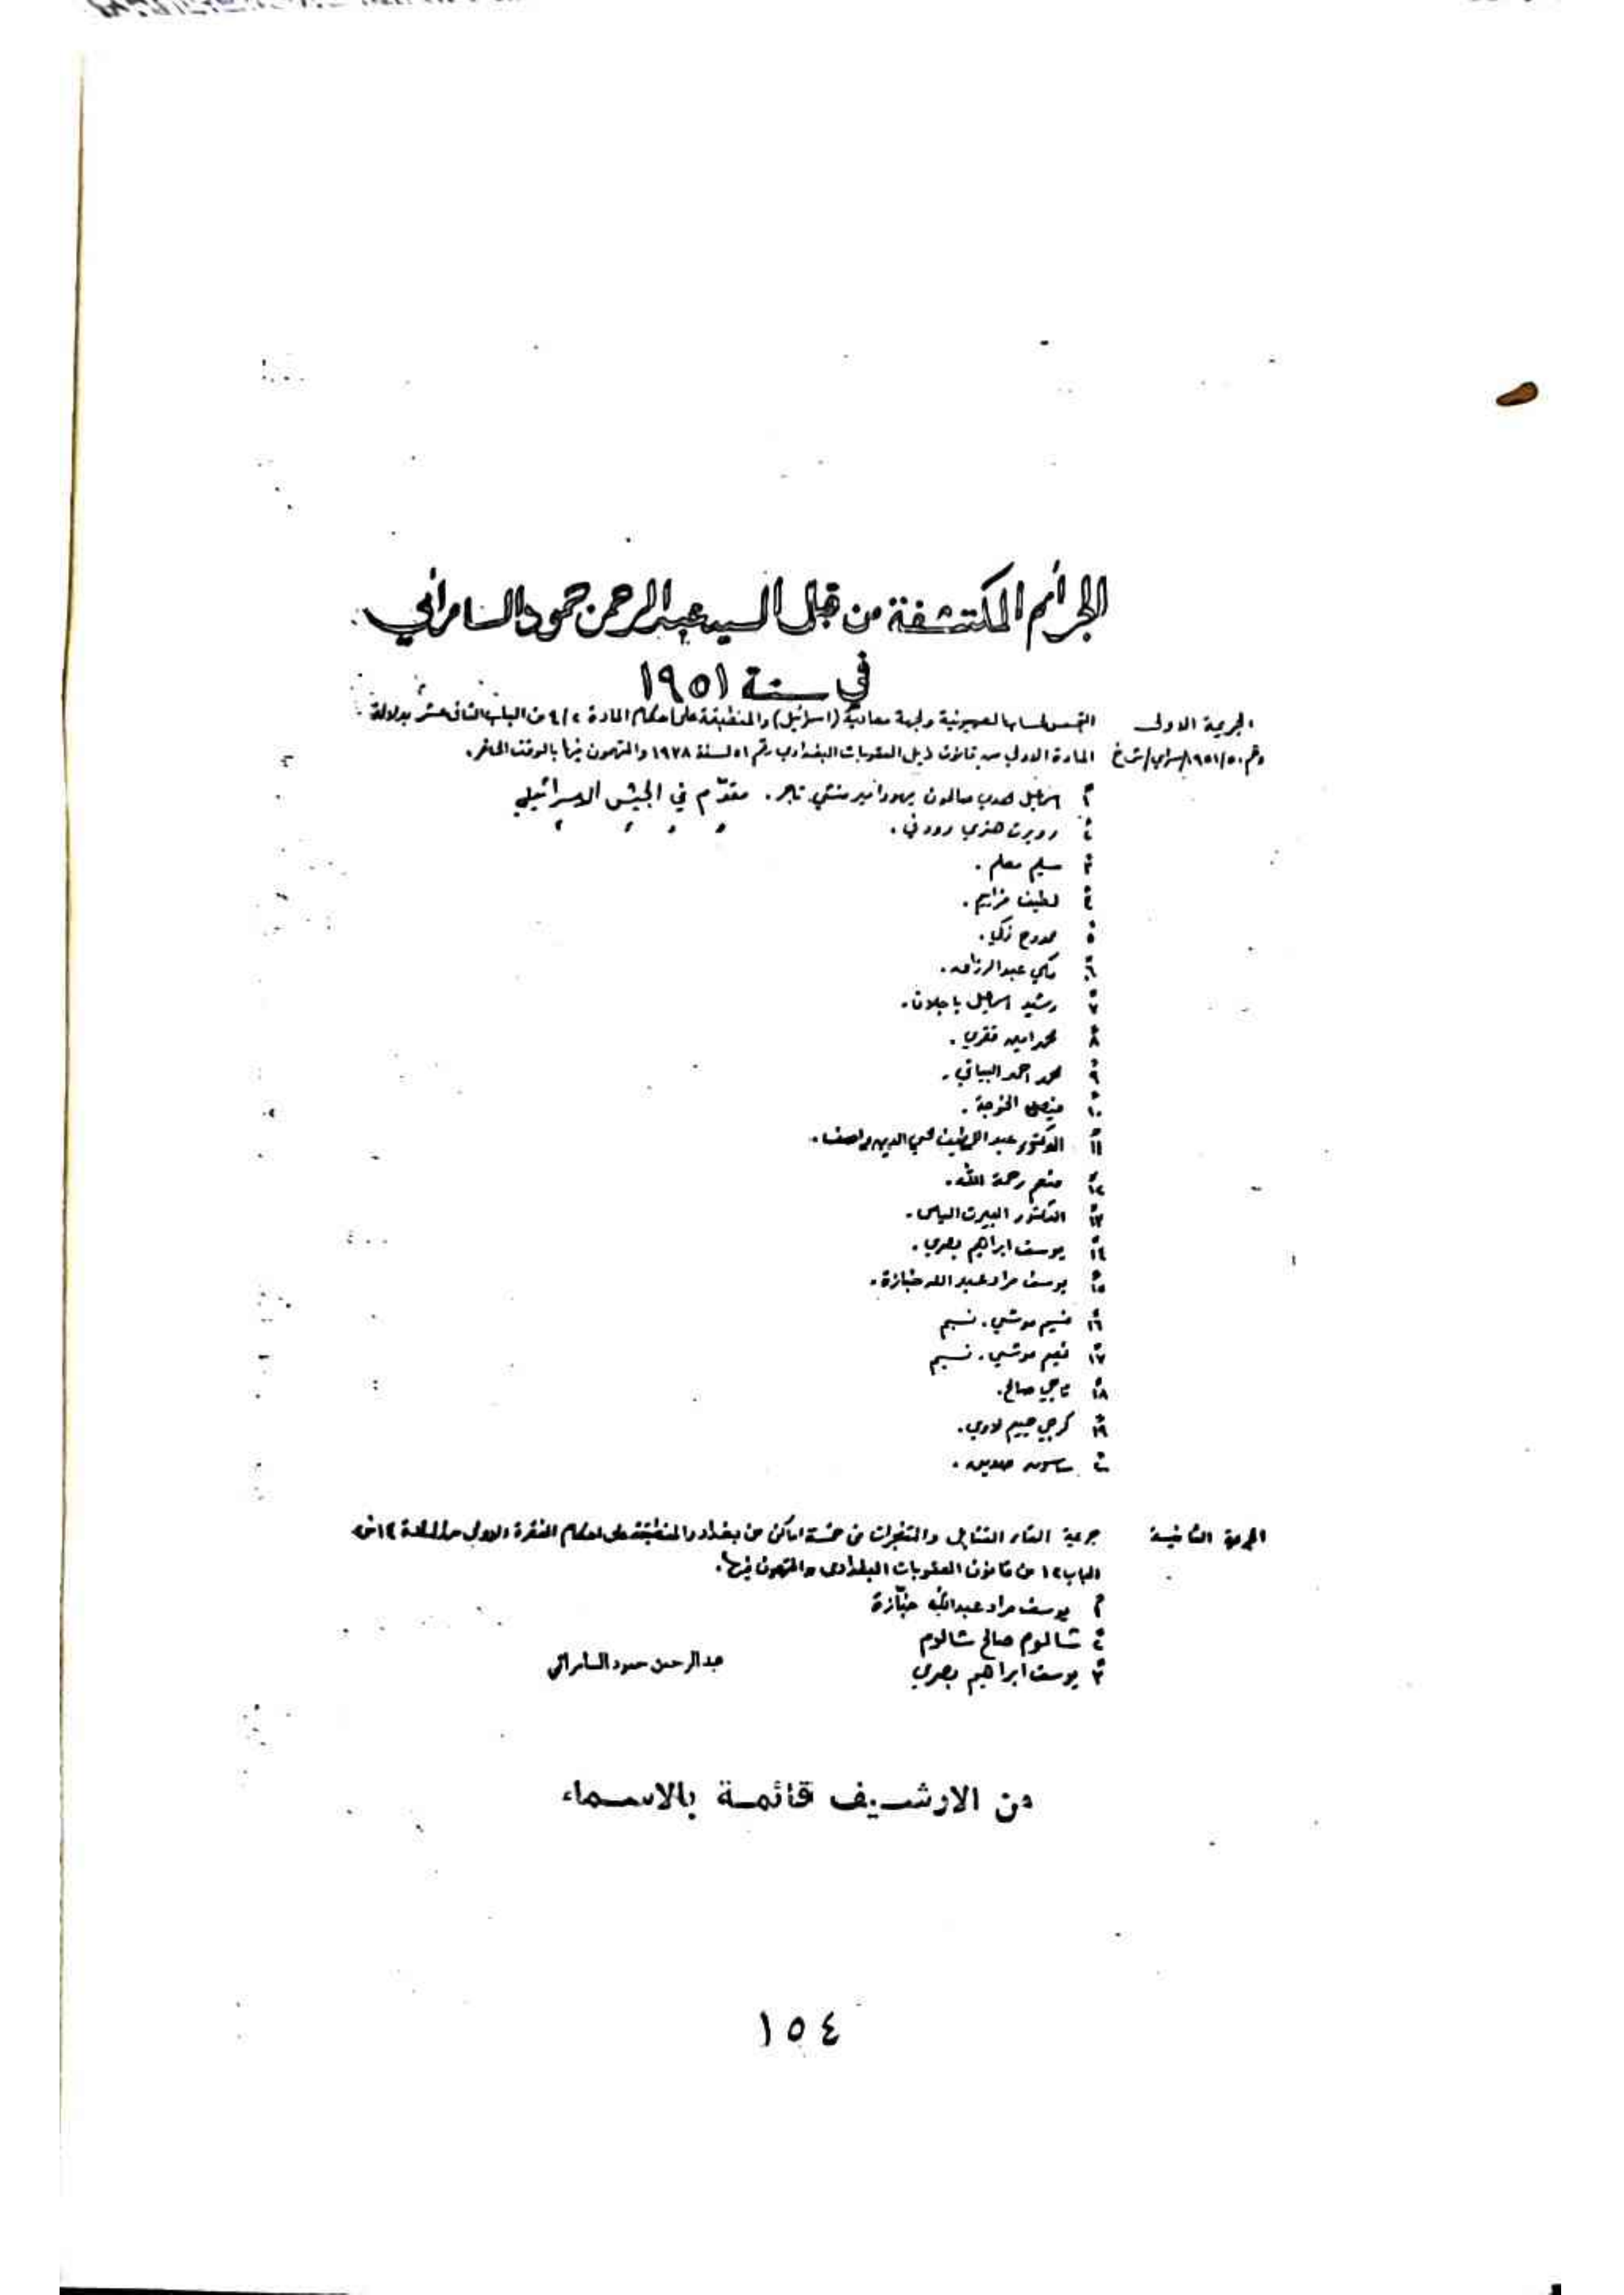 الجرائم المكتشفة من قبل السيد عبدالرحمن حمود السامرائي
في سنة ١٩٥١
الجريمة الاولى التجسس لحساب الصهيونية ولجهة معادية (اسرائيل) والمنطبقة على احكام المادة من الباب الثاني عشر بدلالة
المادة الاولى من قانون ذيل العقوبات البغدادي رقم ٥١ لسنة ١٩٣٨ والمتهمون فيها بالوقت الحاضر.
١ اسماعيل صالحون تاجر. مقدّم في الجيش الاسرائيلي
٢ روبرت هنري رودني.
٣ سليم معلم.
٤ لطيف مزايم.
٥ ممدوح زكي.
٦ مكي عبدالرزاق.
٧ رشيد اسماعيل باجلان.
٨ محمد امين فقري.
٩ محمد احمد البياتي.
١٠ فيصل الخوجة.
١١ الدكتور عبد اللطيف محي الدين واصف.
١٢ منعم رحمة الله.
١٣ الدكتور البيرت الياس.
١٤ يوسف ابراهيم بصري.
١٥ يوسف مراد عبد الله خبازة.
١٦ نسيم موشي. نسيم
١٧ نعيم موشي. نسيم
١٨ ناجي صالح.
١٩ كرجي حييم لاوي.
٢٠ ساسون صديق.
الجريمة الثانية جريمة القاء القنابل والمتفجرات في خمسة اماكن من بغداد والمنطبقة على احكام الفقرة الاولى من المادة ١٢ من
الباب ١٢ من قانون العقوبات البغدادي والمتهمون فيها.
١ يوسف مراد عبدالله خبّازة
٢ شالوم صالح شالوم
٣ يوسف ابراهيم بصري
عبدالرحمن حمود السامرائي
من الارشيف قائمة بالاسماء
١٥٤